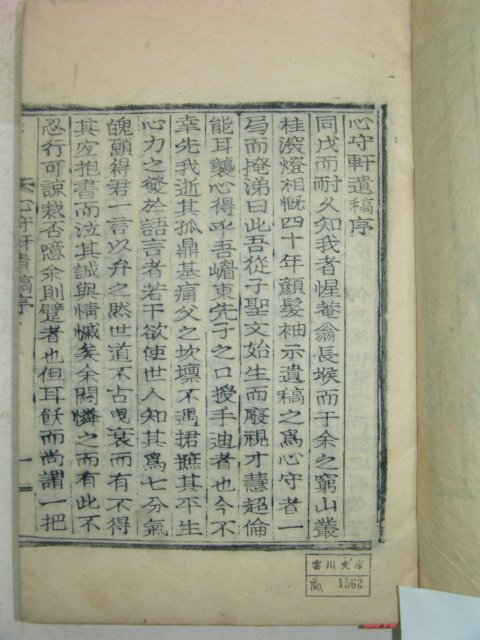 心守軒遺稿序
同戊而耐久知我者惺菴翁長堠而于余之窮山叢
桂深燈相慨四十年顔髮袖示遺稿之爲心守者一
局而掩涕曰此吾從子聖文始生而廢視才慧超倫
能耳襲心得乎吾嶦東先子之口授手迪者也今不
幸先我逝其孤鼎基痛父之坎壈不遇捃摭其平生
心力之發於語言者若干欲使世人知其爲七分氣
魄願得君一言以弁之然世道不古鬼衰而有不得
其皮抱書而泣其誠與情慽矣余悶憐之而有此不
忍行可諒栽否噫余則躄者也但耳飫而尚謂一把
心守軒遺稿序
一
雲川文庫
No. 1562